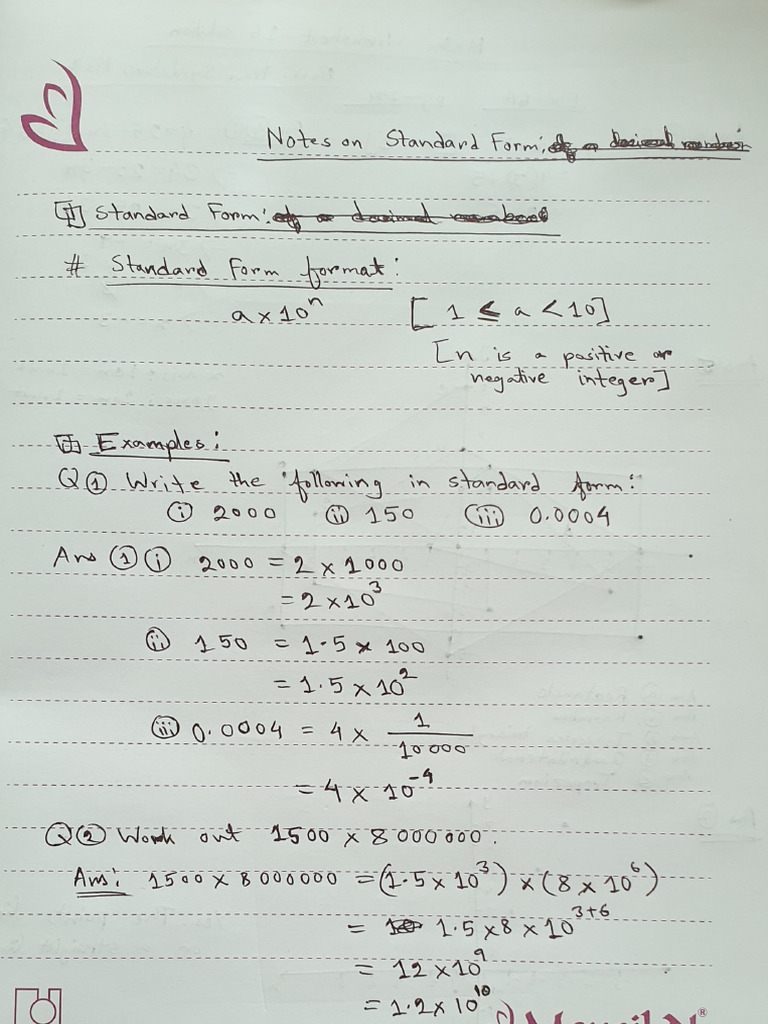 Notes on Standard Form: of a decimal number
Standard Form: of a decimal number
# Standard Form format:
a × 10ⁿ [1 ≤ a < 10]
[n is a positive or
negative integer]
Examples:
Q① Write the following in standard form:
ⓘ 2000 ⓘⓘ 150 ⓘⓘⓘ 0.0004
Ans ① ⓘ 2000 = 2 × 1000
= 2 × 10³
ⓘⓘ 150 = 1.5 × 100
= 1.5 × 10²
ⓘⓘⓘ 0.0004 = 4 × 1/10000
= 4 × 10⁻⁴
Q② Work out 1500 × 8000000.
Ans: 1500 × 8000000 = (1.5 × 10³) × (8 × 10⁶)
= 1.5 × 8 × 10³⁺⁶
= 12 × 10⁹
= 1.2 × 10¹⁰